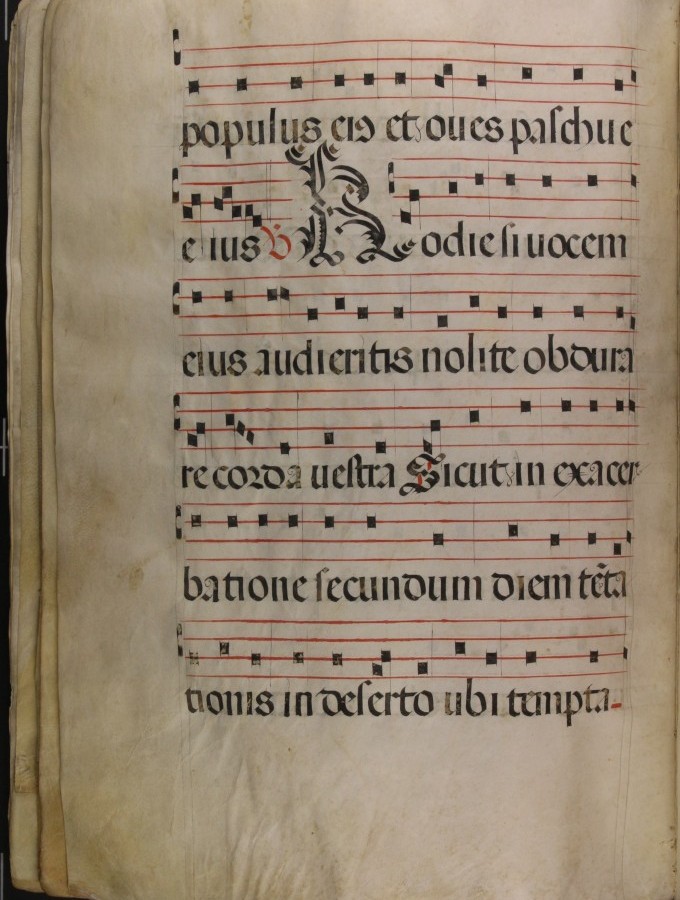 populus eiꝰ et oues paschue
eius V Hodie si uocem
eius audieritis nolite obdura
re corda uestra Sicut in exacer
batione secundum diem te᷑ta
tionis in deserto ubi tempta-